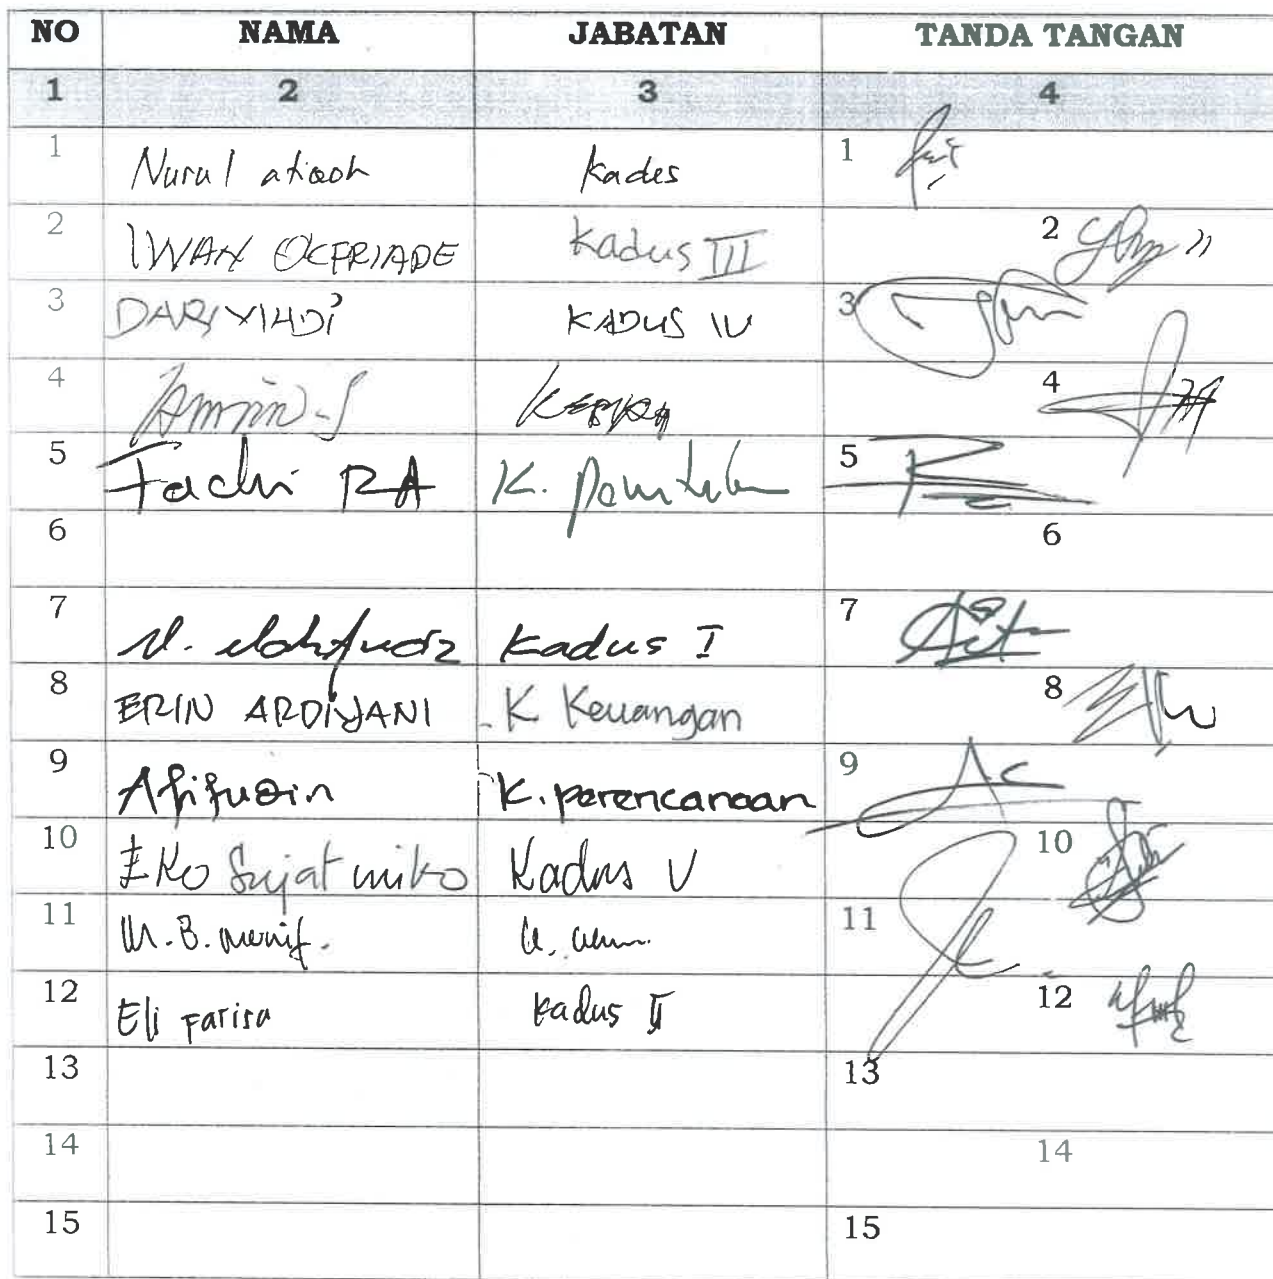 NO NAMA JABATAN TANDA TANGAN
1 2 3 4
1 Nurul atiqoh Kades 1
2 IWAN OCFRIADE Kadus III 2
3 DARIYIHDI KADUS IV 3
4 4
5 Fachi RA K. 5
6 6
7 Kadus I 7
8 ERIN ARDIYANI K Keuangan 8
9 Afifudin K. perencanaan 9
10 EKO Sujatmiko Kadus V 10
11 M. B. 11
12 Eli Farisa Kadus II 12
13 13
14 14
15 15